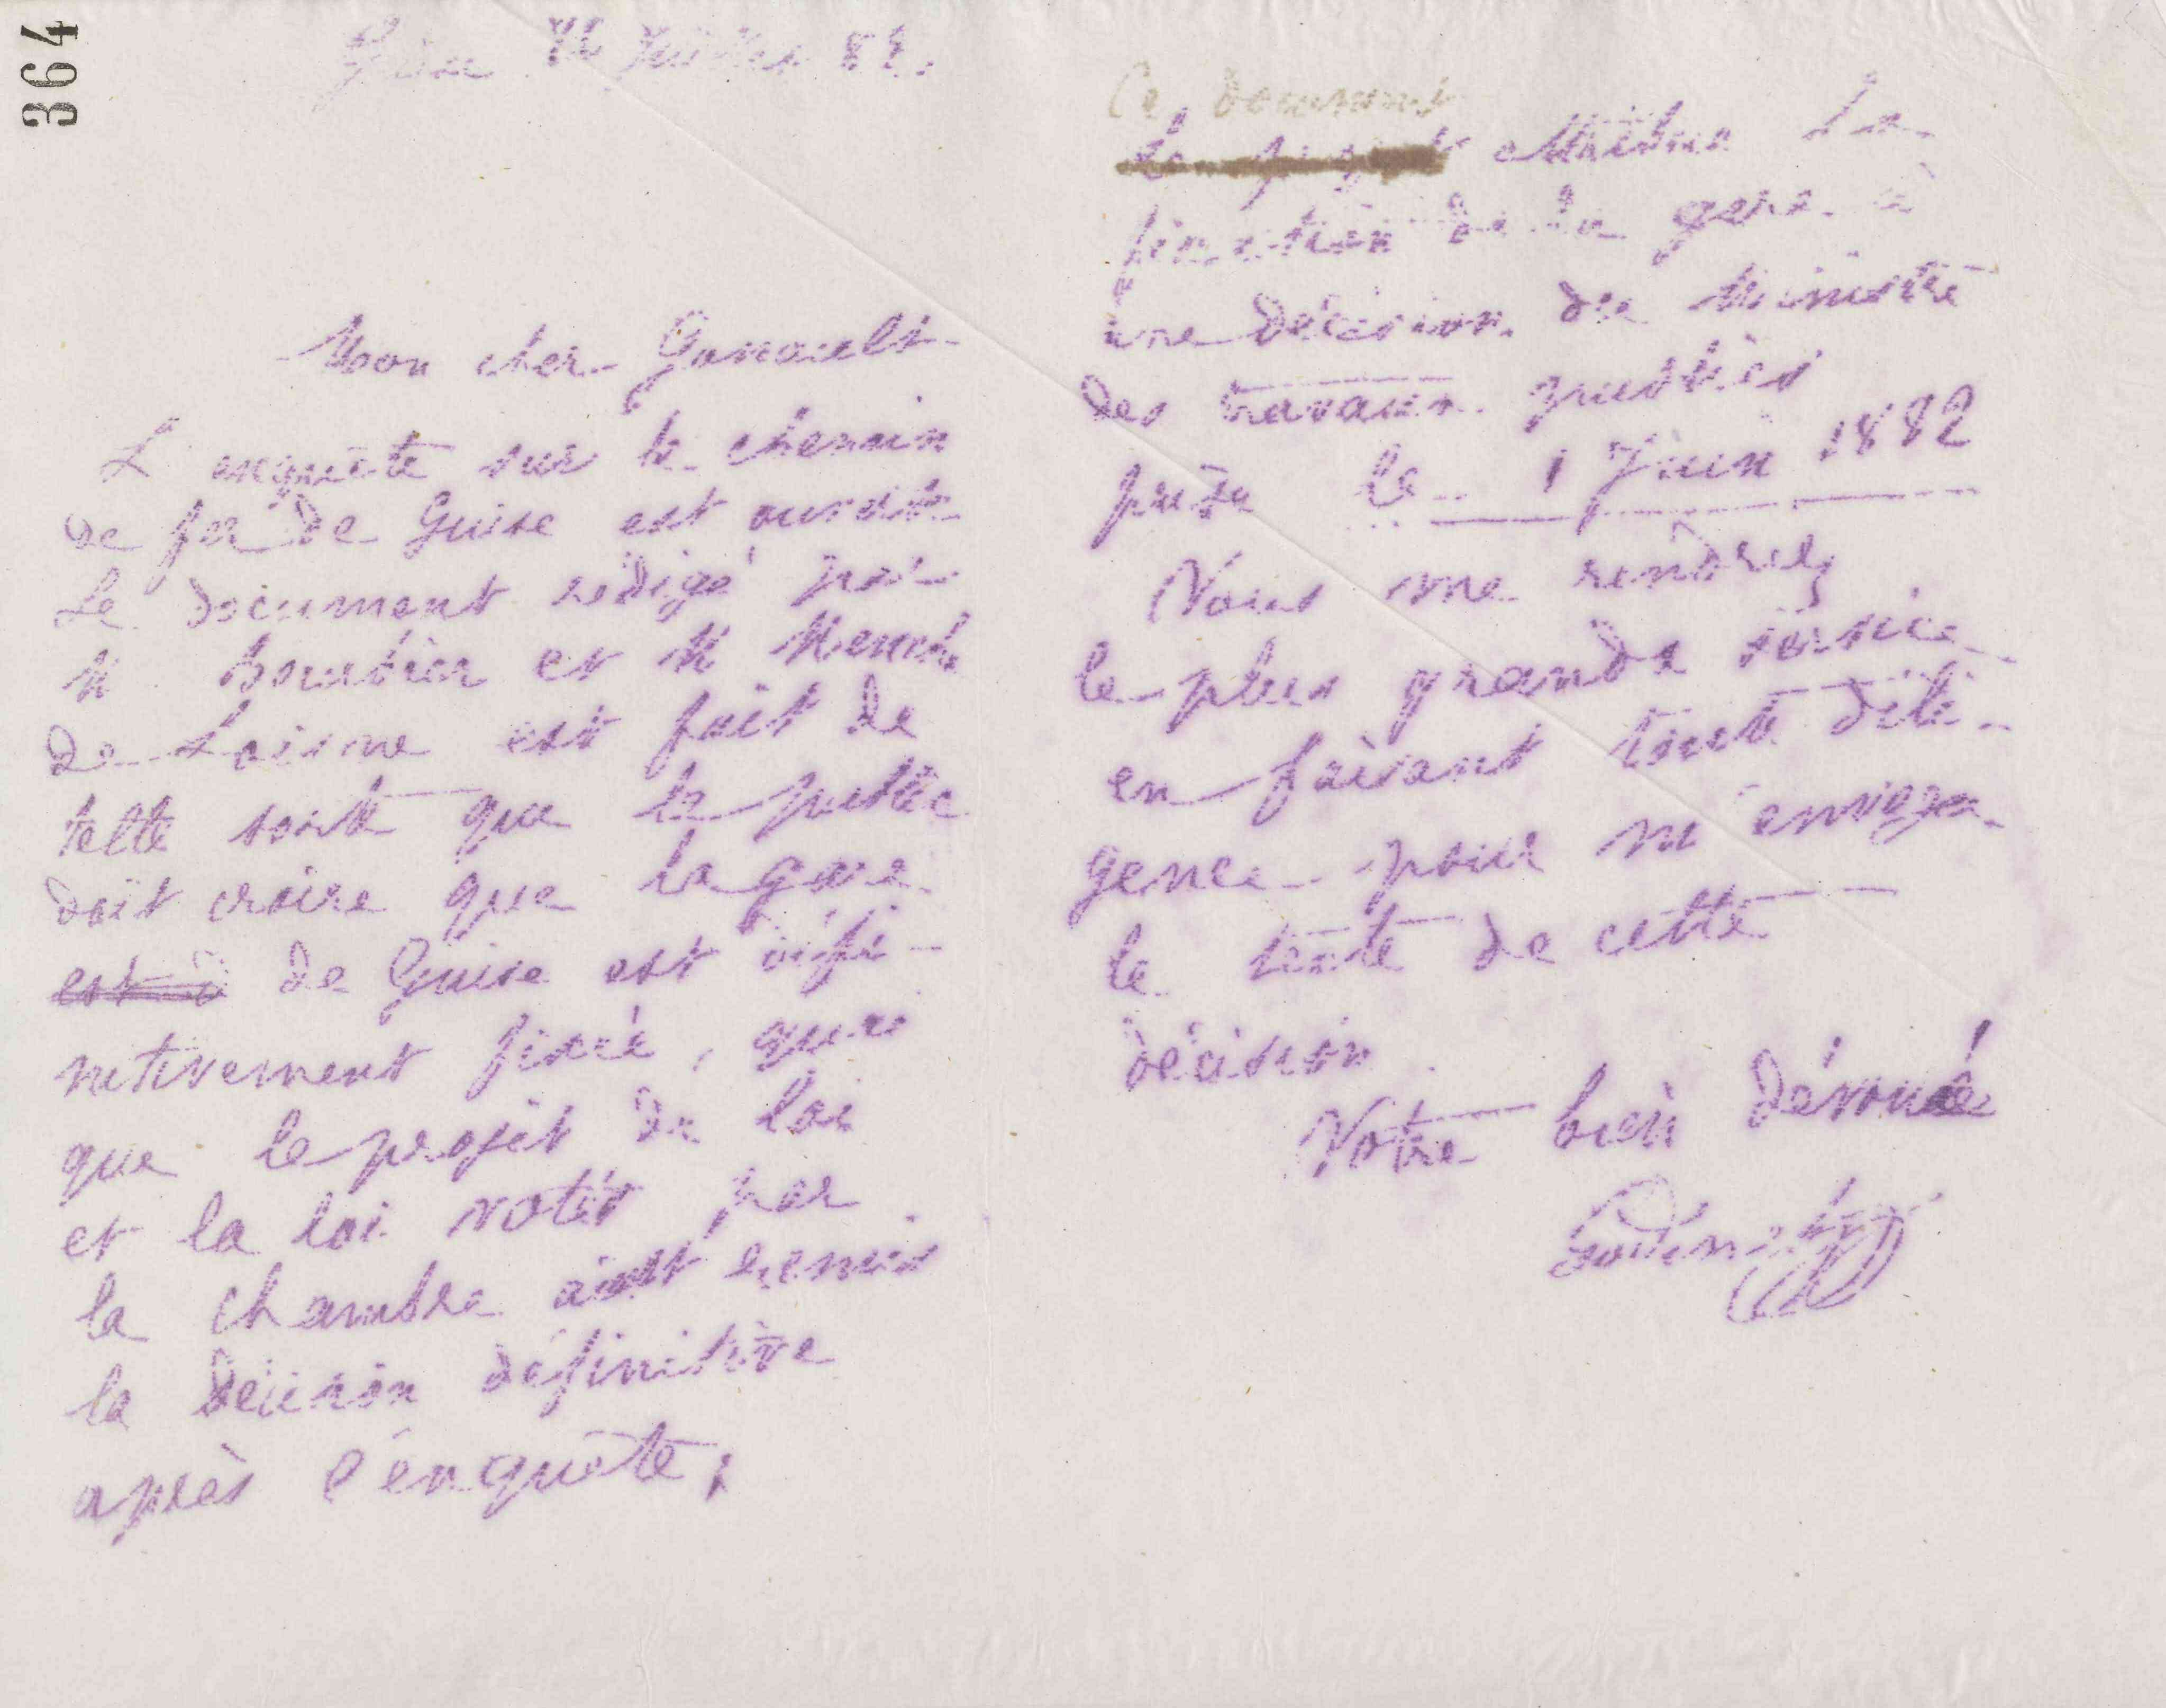 364
Guise Juillet 82.
Mon cher Ganault
L'enquête sur le chemin
de fer de Guise est ouverte
Le document rédigé par
M. Boudier et M Menche
de Loisne est fait de
telle sorte que le public
doit croire que la gare
est à de Guise est défi-
nitivement fixée, quoi
que le projet de loi
et la loi votés par
la chambre aient remis
la décision définitive
après l'enquête,
Ce document
attribue la
fixation de la gare à
une décision du Ministre
des travaux publics
prise le 1 Juin 1882
Vous me rendrez
le plus grande service
en faisant toute dili-
gence pour m'envoyer
le texte de cette
décision.
Votre bien dévoué
Godin